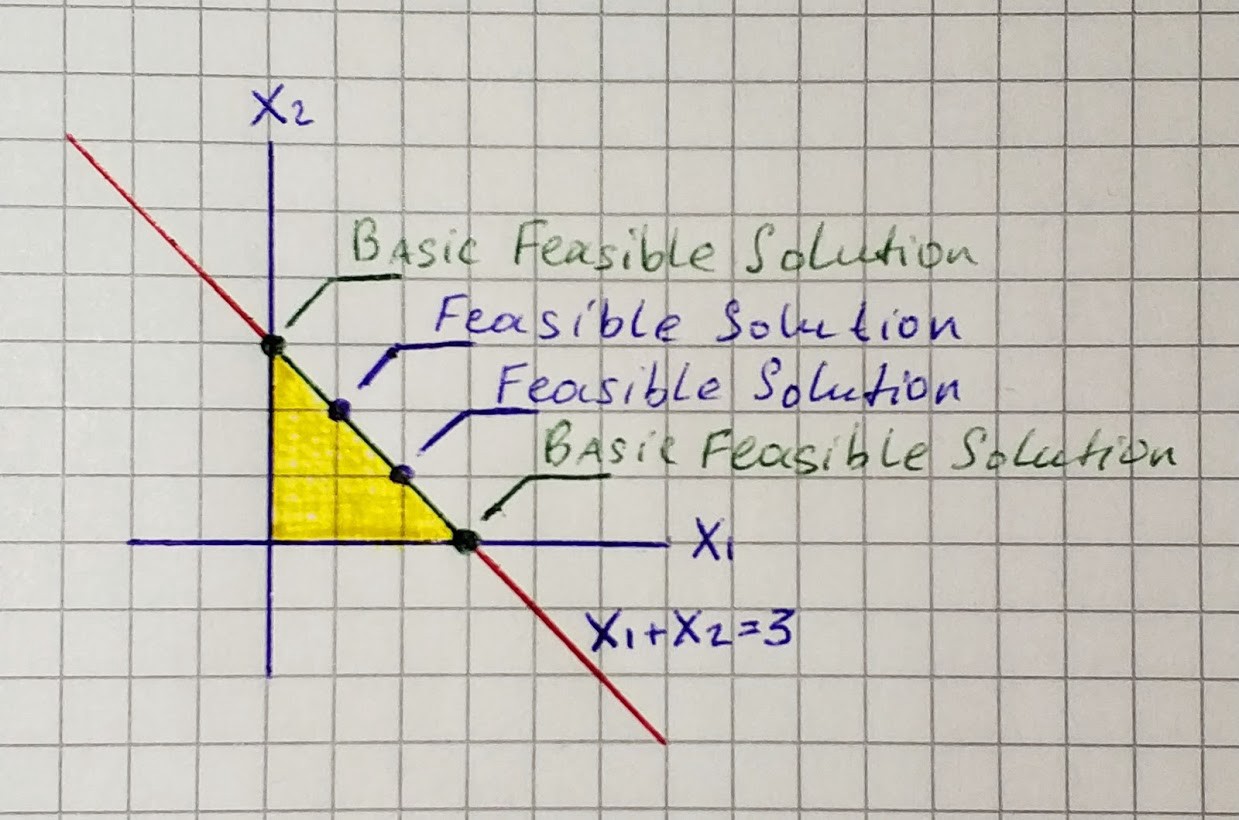 X2
BAsic Feasible Solution
Feasible Solution
Feasible Solution
BAsic Feasible Solution
X1
X1+X2=3